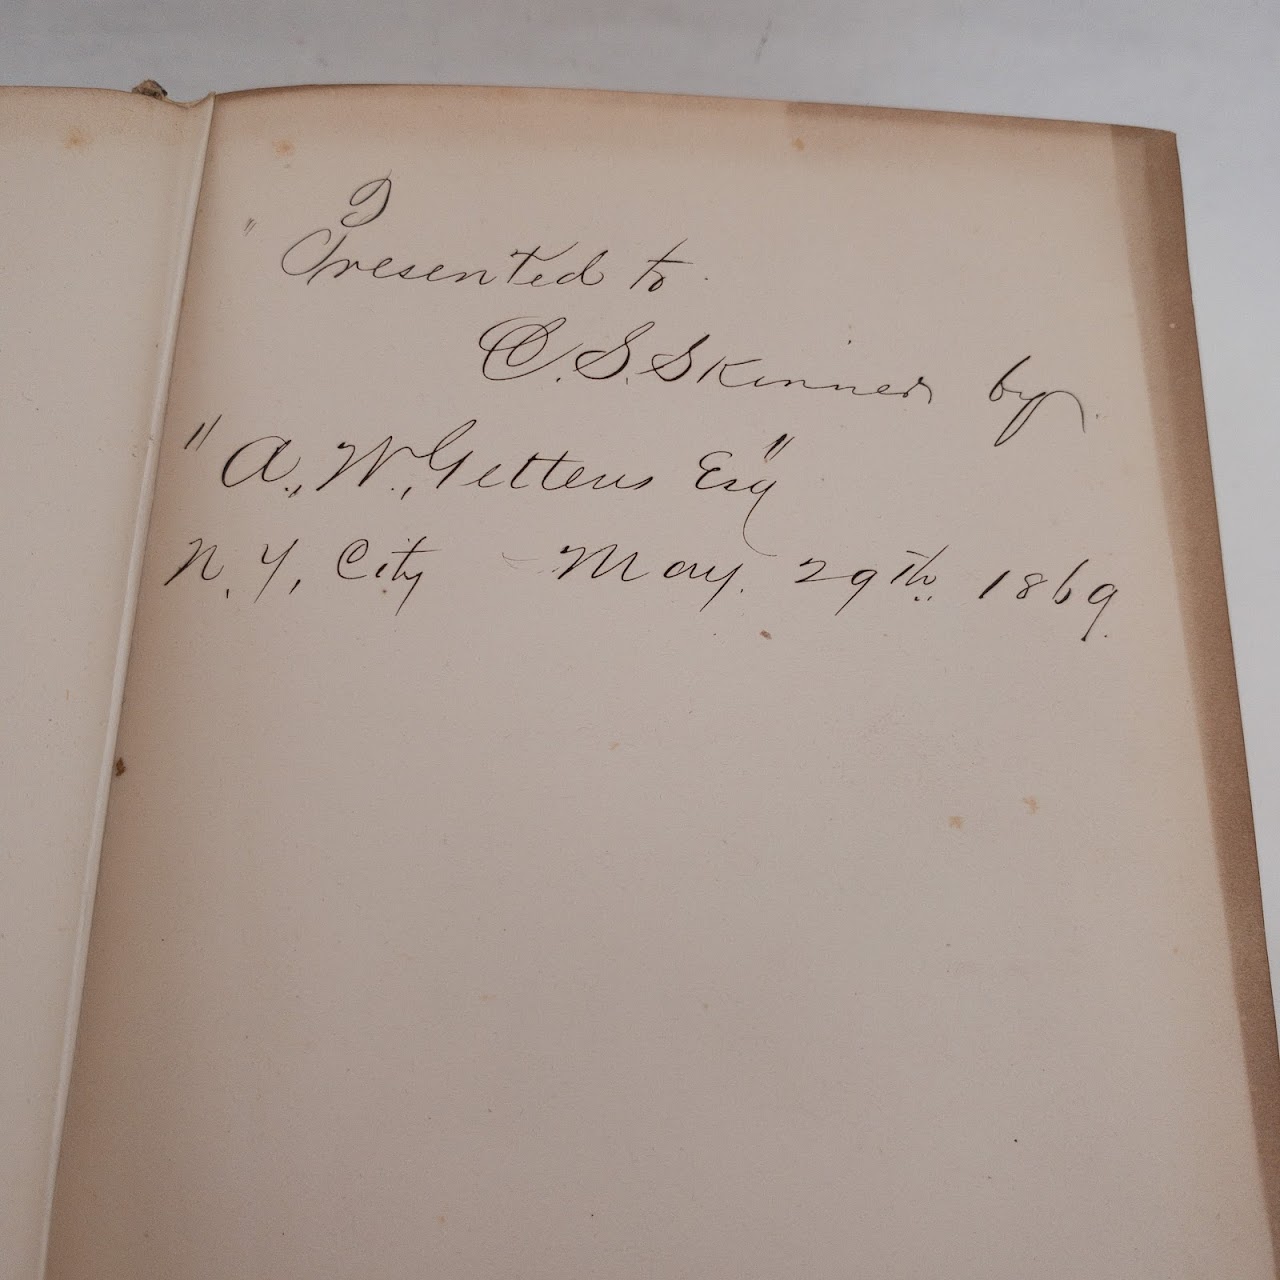 " Presented to
C. S. Skinner by
"A. W. Gettens Esq"
N. Y. City - May. 29th 1869.